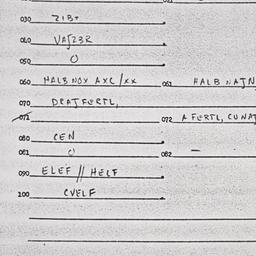 030 ZIB+
040 VAJZ3R
050 O
060 HALB NOX AXC /XX 061 HALB NAJN
070 DRAJFERTL,
071 072 A FERTL, CUNAJ
080 CEN
081 O 082 —
090 ELEF // HELF
100 CVELF